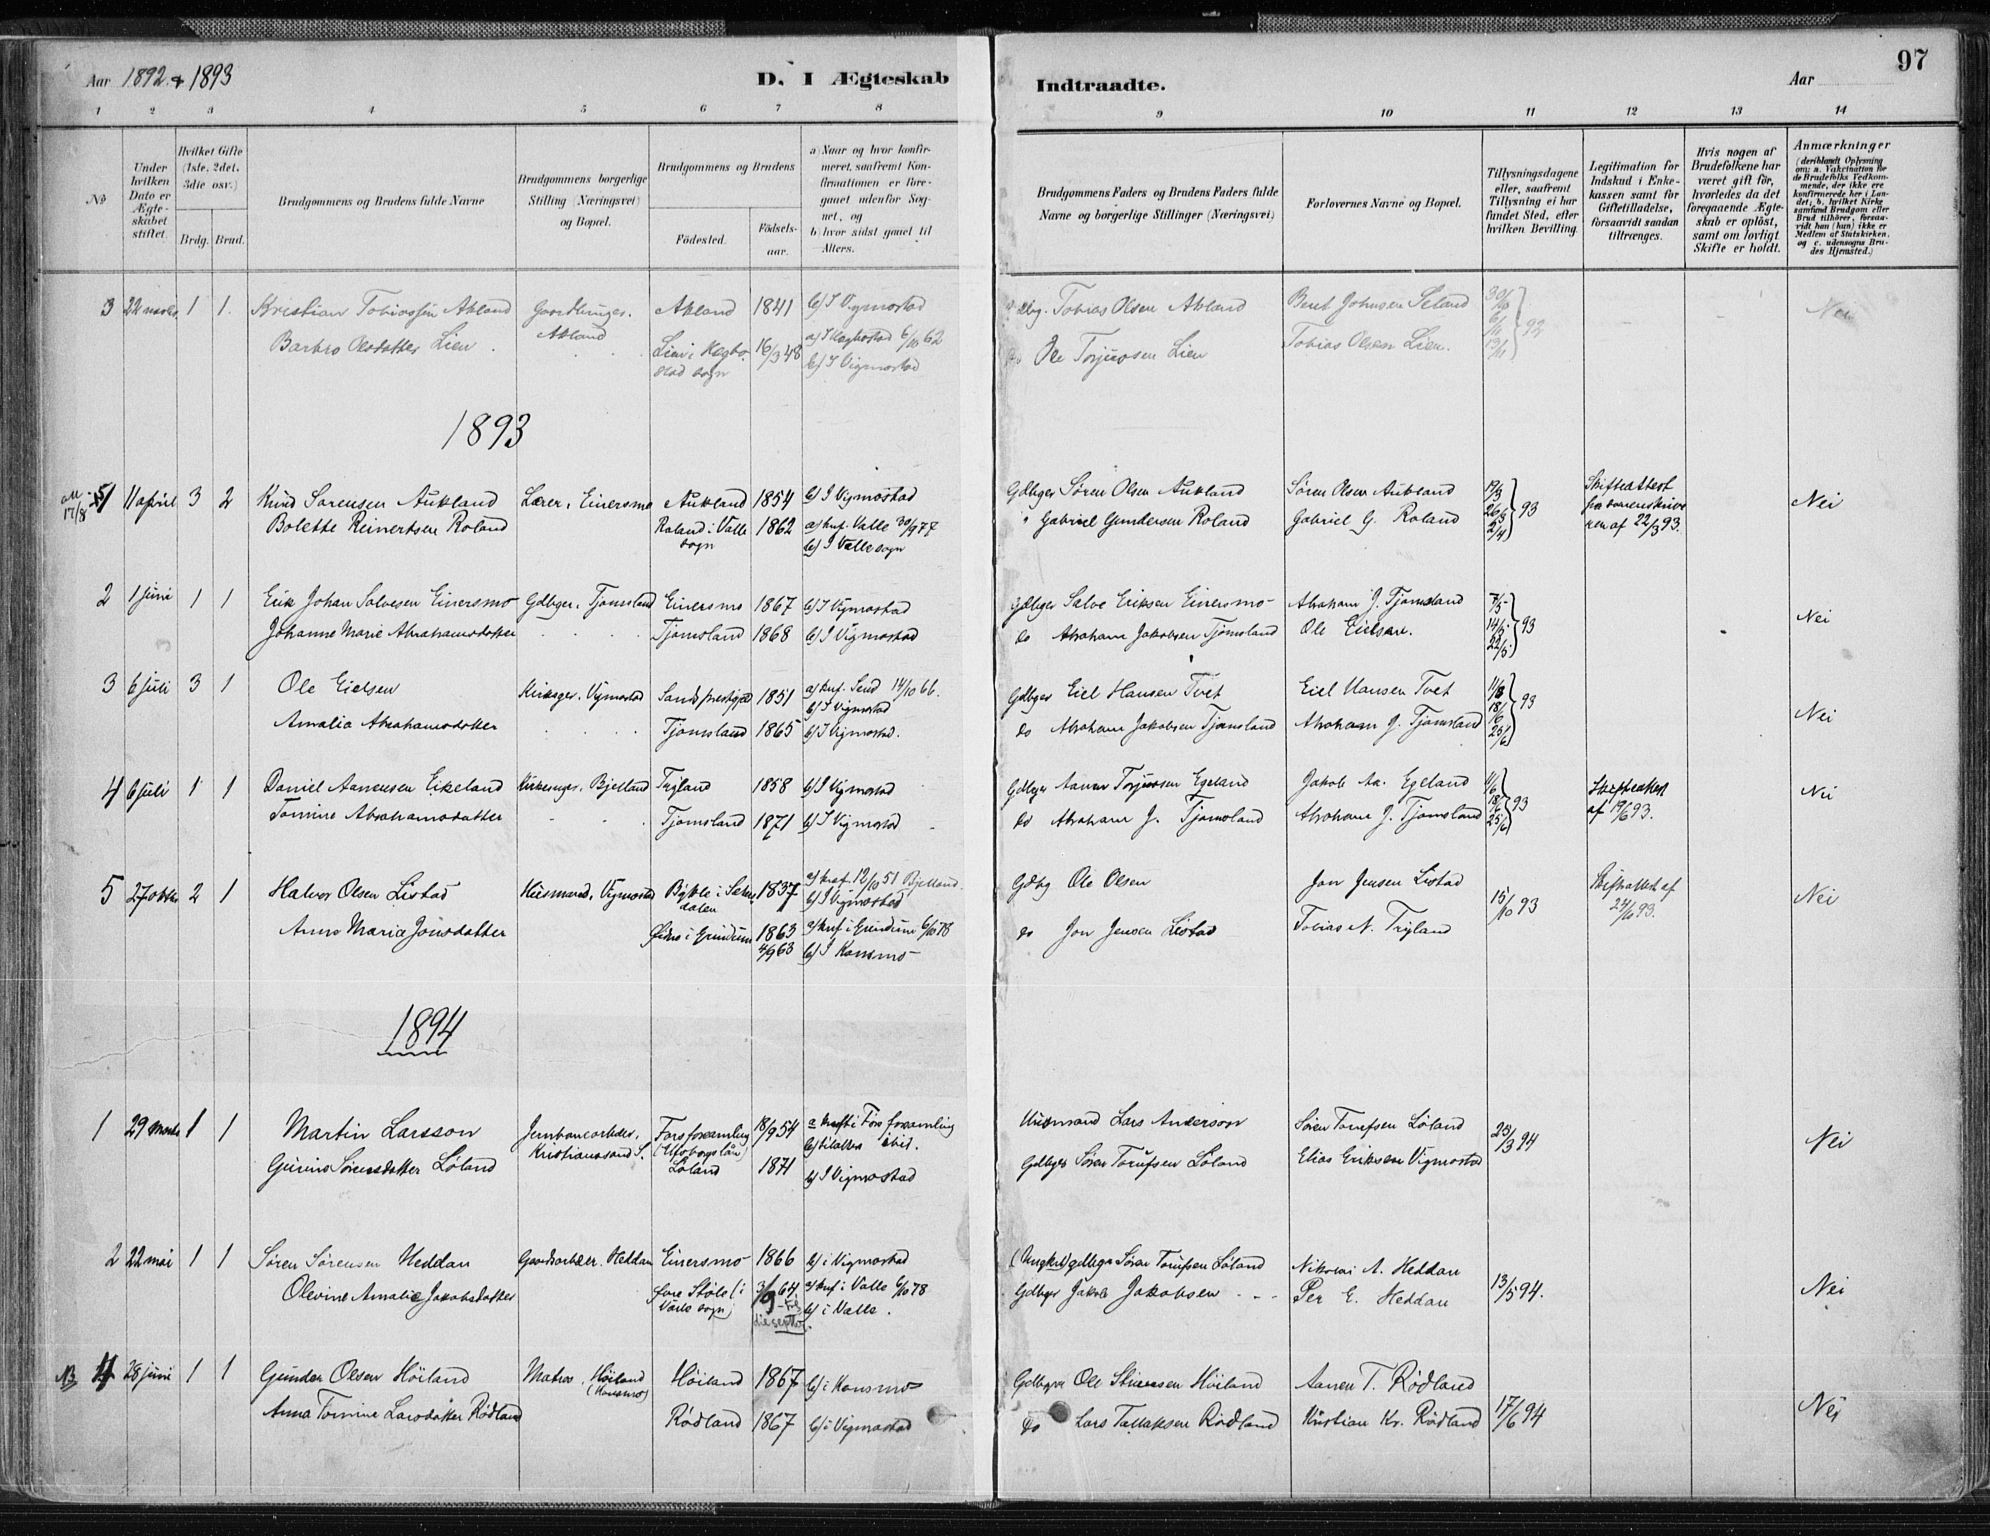 97
Aar 1892 & 1893
D. I Ægteskab Indtraadte.
Aar
1 2 3 4 5 6 7 8 9 10 11 12 13 14
No
Under hvilken Dato er Ægteskabet stiftet.
Hvilket Gifte (1ste, 2det, 3die osv.)
Brdg. Brud.
Brudgommens og Brudens fulde Navne
Brudgommens borgerlige Stilling (Næringsvei) og Bopæl.
Brudgommens og Brudens
Födested. Födselsaar.
a) Naar og hvor konfirmeret, saafremt Konfirmationen er foregaaet udenfor Sognet, og
b) hvor sidst gaaet til Alters.
Brudgommens Faders og Brudens Faders fulde Navne og borgerlige Stillinger (Næringsvei)
Forlovernes Navne og Bopæl.
Tillysningsdagene eller, saafremt Tillysning ei har fundet Sted, efter hvilken Bevilling.
Legitimation for Indskud i Enkekassen samt för Giftetilladelse, forsaavidt saadan tiltrænges.
Hvis nogen af Brudefolkene har været gift för, hvorledes da det foregaaende Ægteskab er oplöst, samt om lovligt Skifte er holdt.
Anmærkninger
(deriblandt Oplysning om: a. Vakcination for de Brudefolks Vedkommende, der ikke ere konfirmerede her i Landet; b. hvilket Kirkesamfund Brudgom eller Brud tilhörer, forsaavidt han (hun) ikke er Medlem af Statskirken, og c. udensogns Brudes Hjemsted.)
3 22 novbr 1 1. Kristian Tobiassen Akland Gaardbruger. Akland 1841 b) I Vigmostad Tobias Olsen Akland Bent Johnsen Seland 30/10 Nei
Akland
Barbro Olsdatter Lien Lien i Hægbo- 16/3 48 a) I Hægbostad 6/10 62 Ole Torjussen Lien Tobias Olsen Lien. 6/11 92
stad sogn b) I Vigmostad 13/11
1893
1 11 april 3 2 Knud Sørensen Aukland Lærer, Einersmo Aukland 1854 b) I Vigmostad Gdbger Søren Olsen Aukland Søren Olsen Aukland 19/3 Skifteattest Nei
Bolette Reinertsen Roland Roland i Valle 1862 a) knf. Valle 30/9 77 " Gabriel Gundersen Roland Gabriel G. Roland 26/3 93 fra sorenskrive
sogn b) I Valle sogn 2/4 ren af 22/3 93.
2 1 juni 1 1 Erik Johan Salvesen Einersmo Gdbger, Tjomsland Einersmo 1867 b) I Vigmostad Gdbger Salve Eriksen Einersmo Abraham J. Tjomsland 7/5 Nei
Johanne Marie Abrahamsdatter Tjomsland 1868 b) I Vigmostad do Abraham Jakobsen Tjomsland Ole Eielsen. 14/5 93
22/5
3 6 juli 3 1 Ole Eielsen Kirkesger. Vigmostad 1851 a) knf. 14/10 66. Gdbger Eiel Hansen Tvet Eiel Hansen Tvet 11/6 Nei
b) I Vigmostad 18/6 93
Amalia Abrahamsdatter Tjomsland 1865 b) I Vigmostad. do Abraham Jakobsen Tjomsland Abraham J. Tjomsland 25/6
4 6 juli 1 1 Daniel Aanensen Eikeland Kirkesanger, Bjelland Tryland 1858 b) I Vigmostad Gdbger Aanen Torjussen Egeland Jakob Aa. Egeland 11/6 Skifteattest Nei
Tomine Abrahamsdatter Tjomsland 1871 b) I Vigmostad do Abraham J. Tjomsland Abraham J. Tjomsland 18/6 93 af 19/6 93.
25/6
5 27 oktbr 2 1 Halvor Olsen Listad Huusmand, Vigmostad Bykle i Sæters 1837 a) knf. 12/10 51 Bjelland. Gdbg Ole Olsen Jon Jensen Listad 15/10 93 Skifteattest af Nei
dalen b) I Vigmostad 24/10 93.
Anna Maria Jonsdatter i Grindum 1863 a) knf i Grindum 6/10 78 do Jon Jensen Listad Tobias N. Tryland
4/9 63 b) I Konsmo
1894
1 29 marts 1 1 Martin Larsson Jernbanearbeider, Fors forsamling 18/9 54 a knft i Fors forsamling Husmand Lars Andersson Søren Torufsen Løland 25/3 94 Nei
Kristianssand S. (Elfsborgs län) b) ibid.
Gurine Sørensdatter Løland Løland 1871 b) I Vigmostad Gdbger Søren Torufsen Løland Elias Eriksen Vigmostad
2 22 mai 1 1 Søren Sørensen Heddan Gaardsarbeider. Heddan Einersmo 1866 b) i Vigmostad gdbger Søren Torufsen Løland Nikolai A. Heddan 13/5 94. Nei
Olevine Amalie Jakobsdatter Støle i 64 a) knf i Valle 6/10 78 Gdbger Jakob Jakobsen Per E. Heddan
Valle sogn) b) i Valle.
NB 4 28 juni 1 1 Gunder Olsen Høiland Matros, Høiland Høiland 1867 b) i Konsmo Gdbger Ole Høiland Aanen T. Rødland 17/6 94 Nei
(Konsmo)
Anna Tomine Larsdatter Rødland Rødland 1867 b) i Vigmostad do Lars Tallaksen Rødland Kristian Kr. Rødland